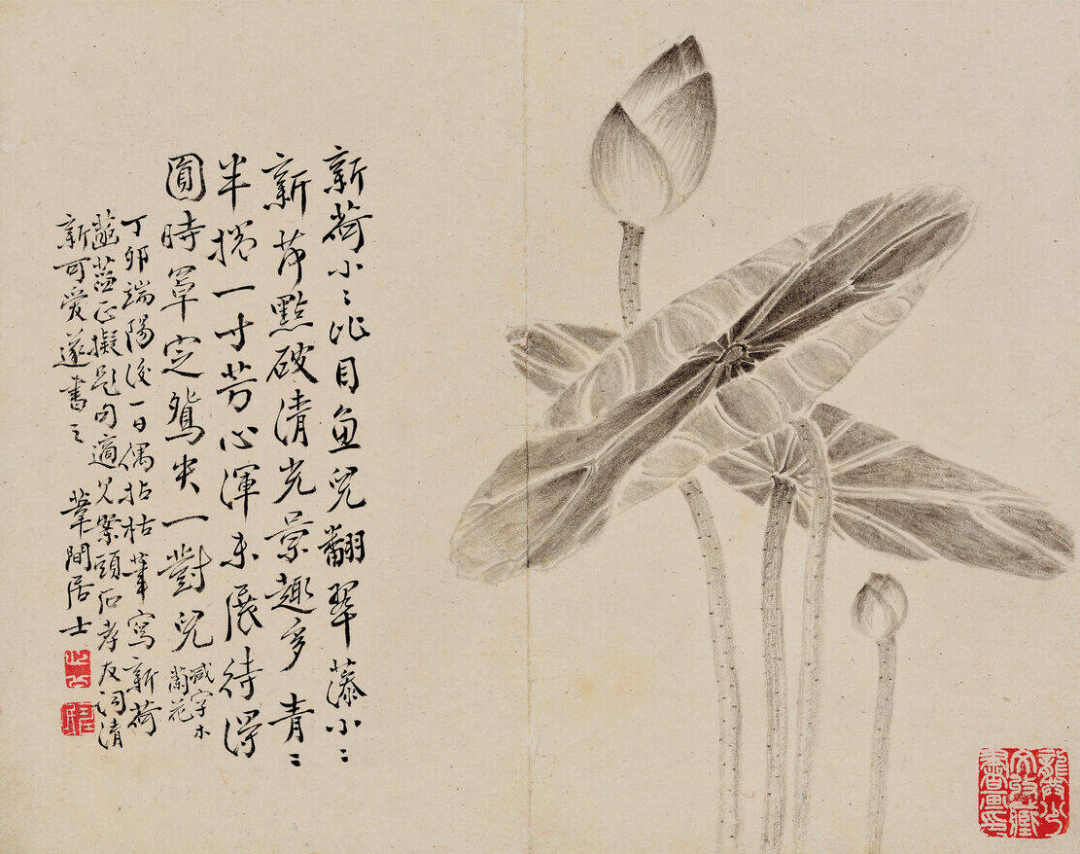 新荷小〻比目魚兒翻翠藻小〻
新荷點破清光景趣多青〻
半捲一寸芳心渾未展待得
圓時罩定鴛央一對兒
減字木
蘭花
丁卯端陽後一日偶拈枯筆寫新荷
菡萏正擬題句適見案頭石孝友詞清
新可愛遂書之 葦間居士